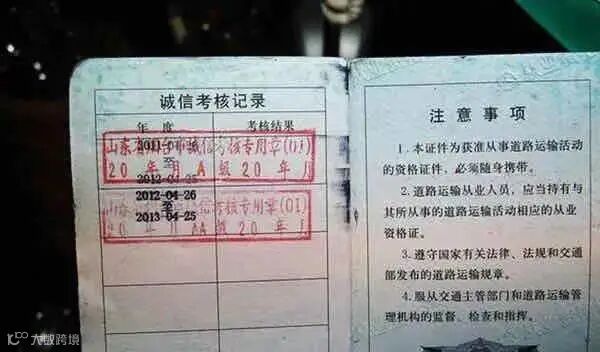 诚信考核记录
年 度
考核结果
至
2012-04-25
20 年 A 级 20 年 月
2012-04-26
至
2013-04-25
20 年 AA 级 20 年 月
注意事项
1.本证件为获准从事道路运输活动
的资格证件,必须随身携带。
2.道路运输从业人员,应当持有与
其所从事的道路运输活动相应的从业
资格证。
3.遵守国家有关法律、法规和交通
部发布的道路运输规章。
4.服从交通主管部门和道路运输管
理机构的监督、检查和指挥。
大数跨境